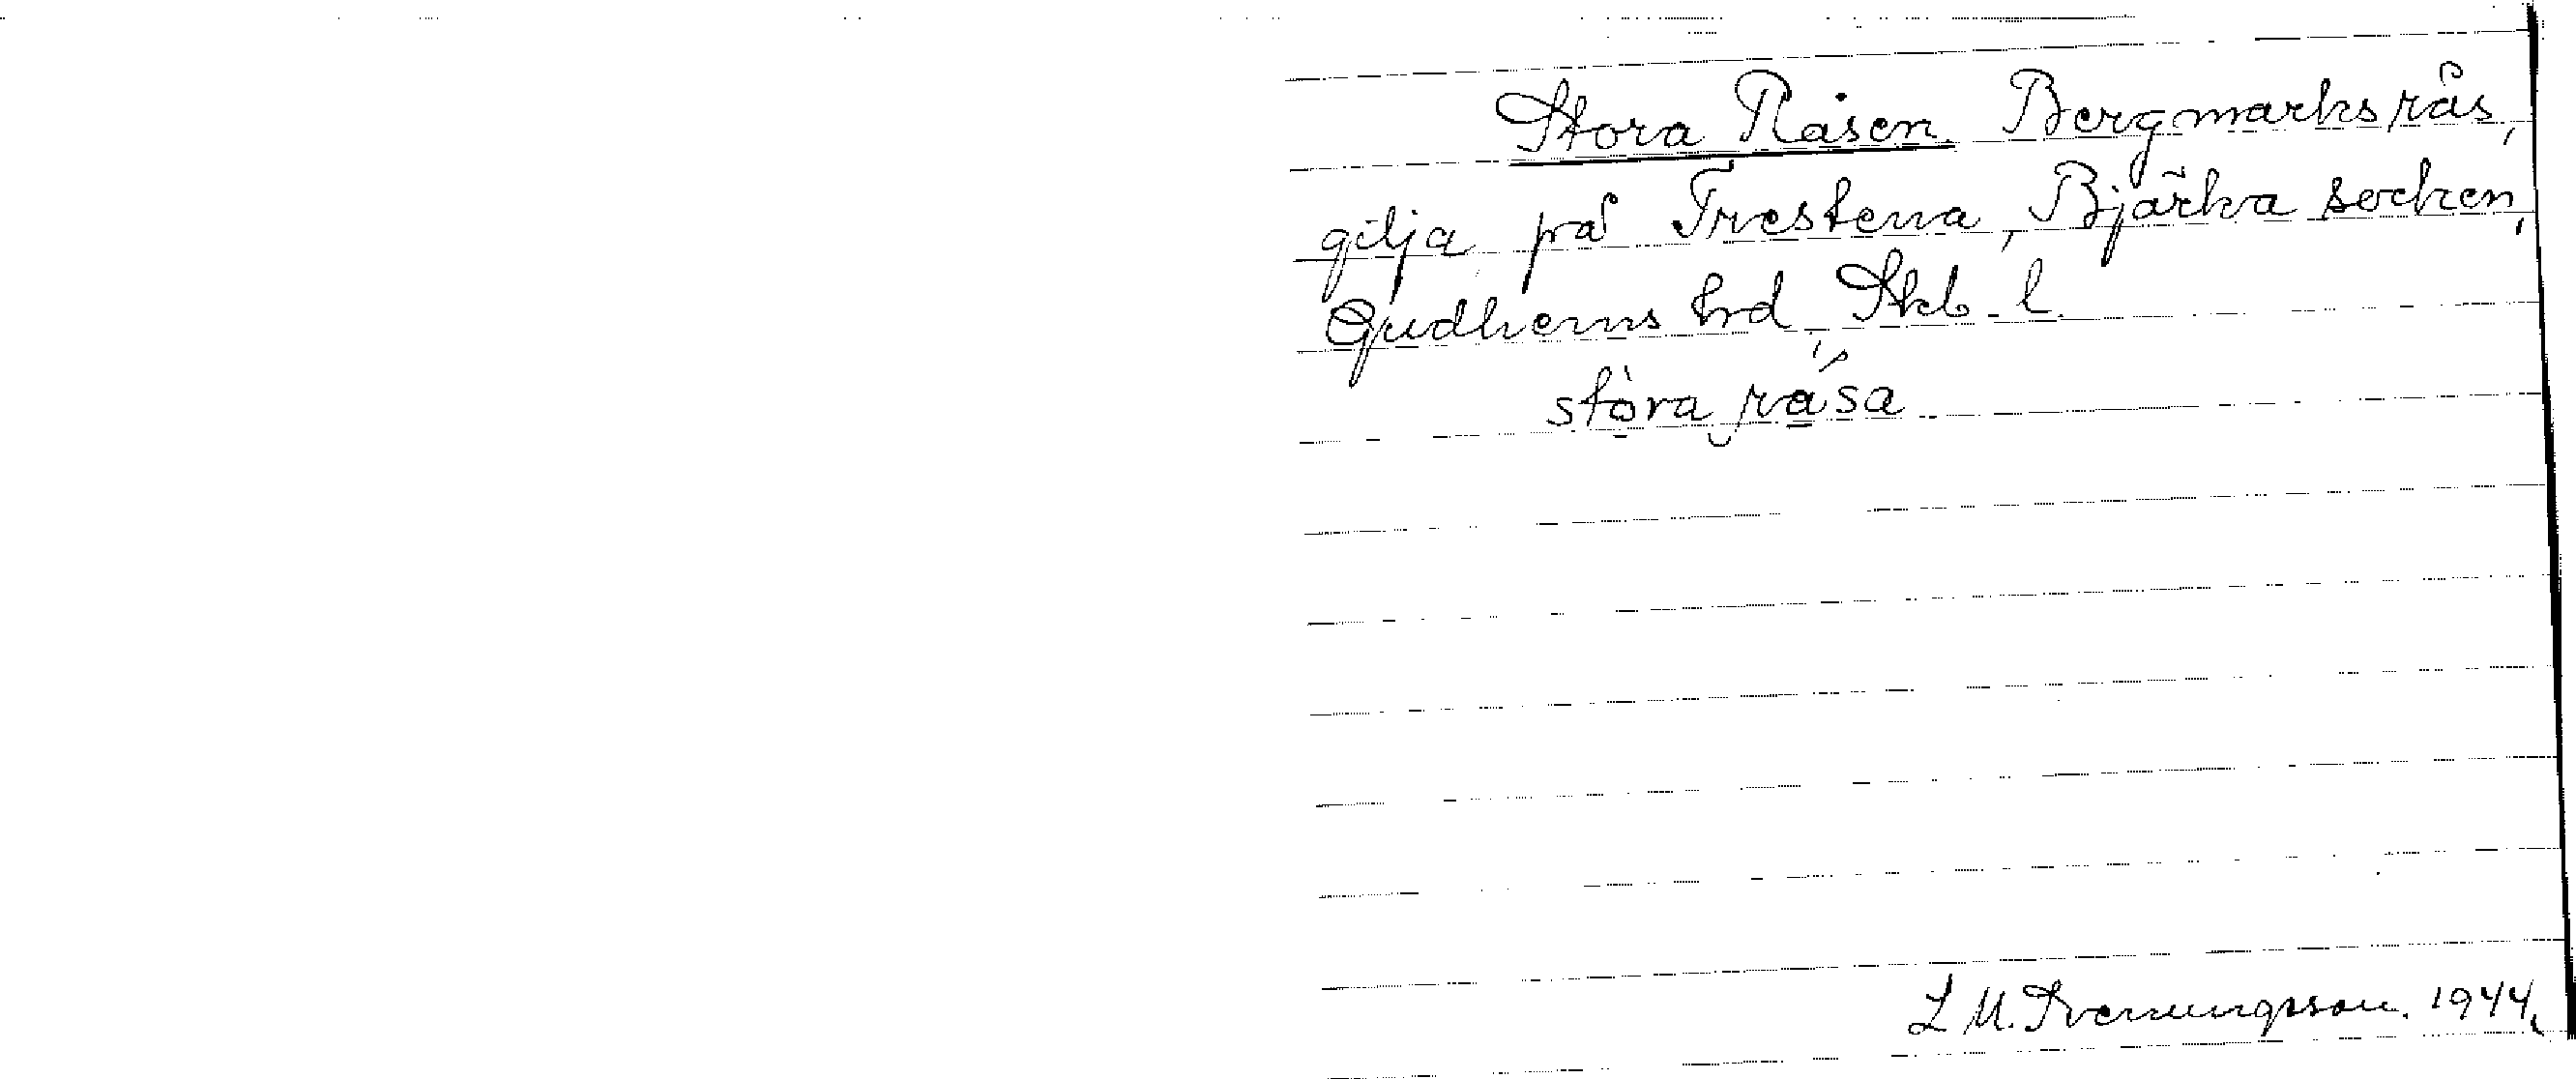 Stora Råsen. Bergmarksrås,
gilja på Trestena, Bjärka socken,
Gudhems hrd, Skb. l.
stòra rása
L M. Svenungsson. 1944.